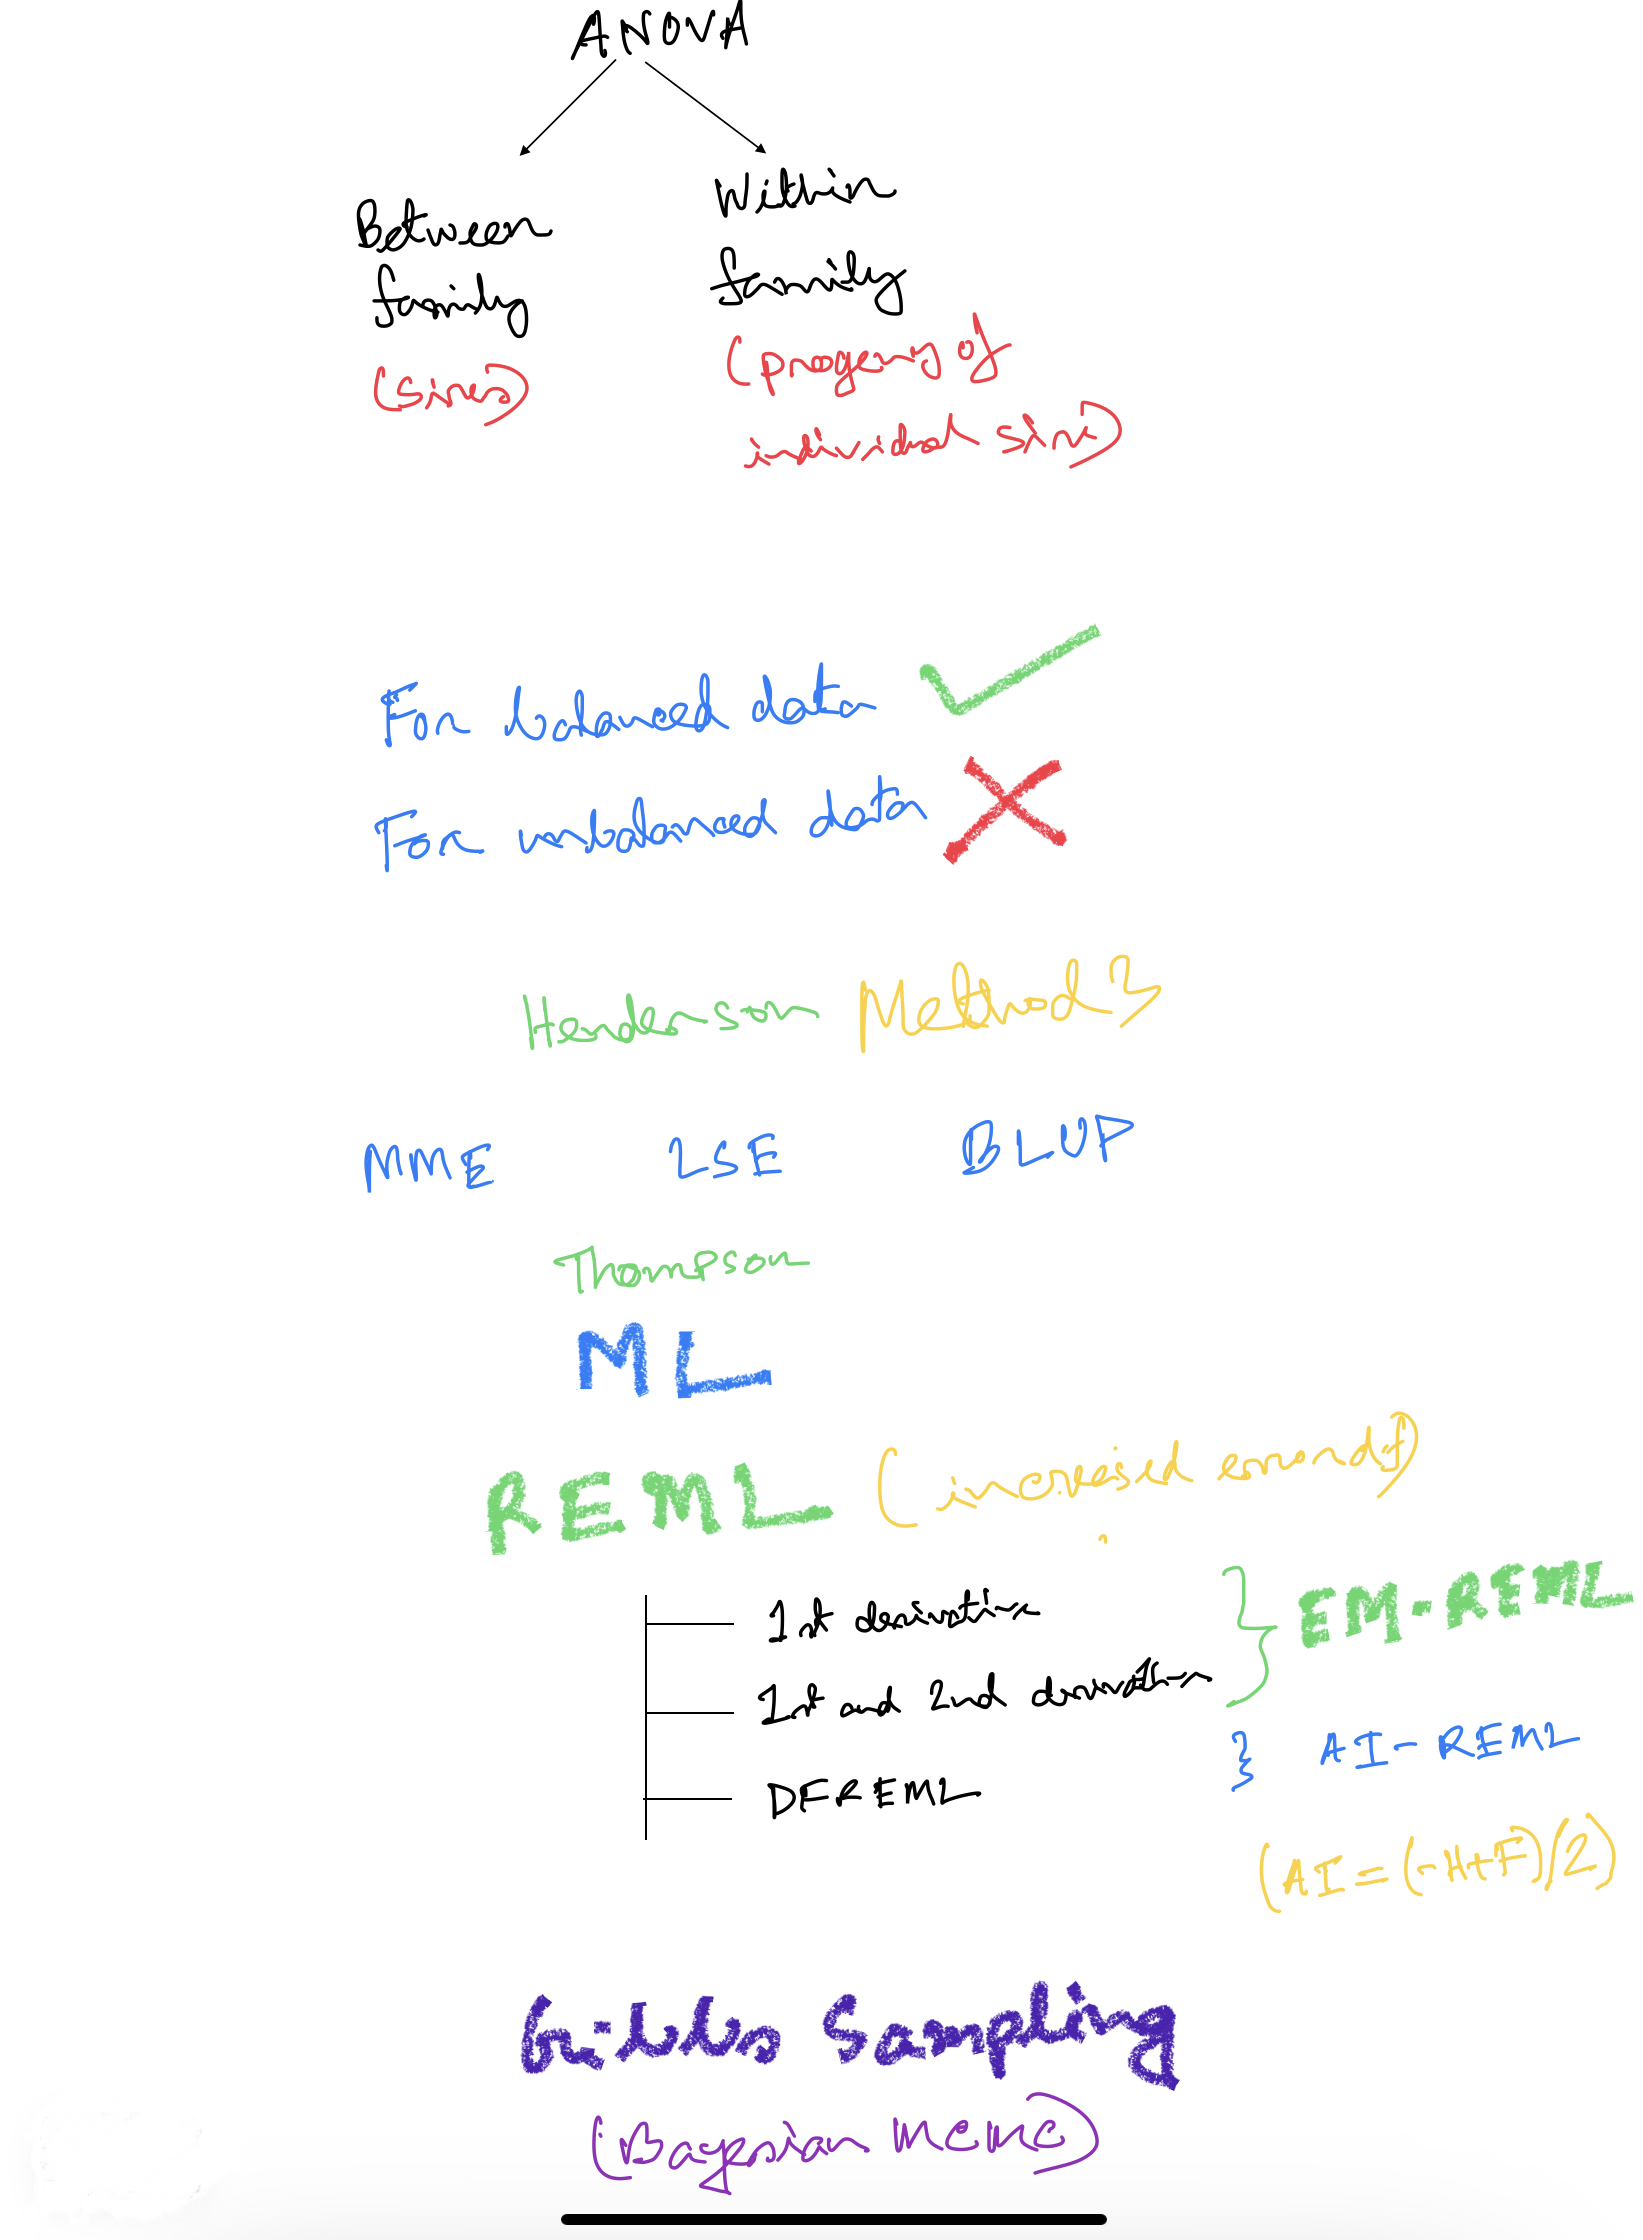 ANOVA
Between
family
(sires)
Within
family
(progeny of
individual sire)
For balanced data
For unbalanced data
Henderson Method 3
MME LSE BLUP
Thompson
ML
REML (increased error df)
1st derivative
1st and 2nd derivative
} EM-REML
DFREML
} AI-REML
(AI = (-H+F)/2)
Gibbs Sampling
(Bayesian MCMC)